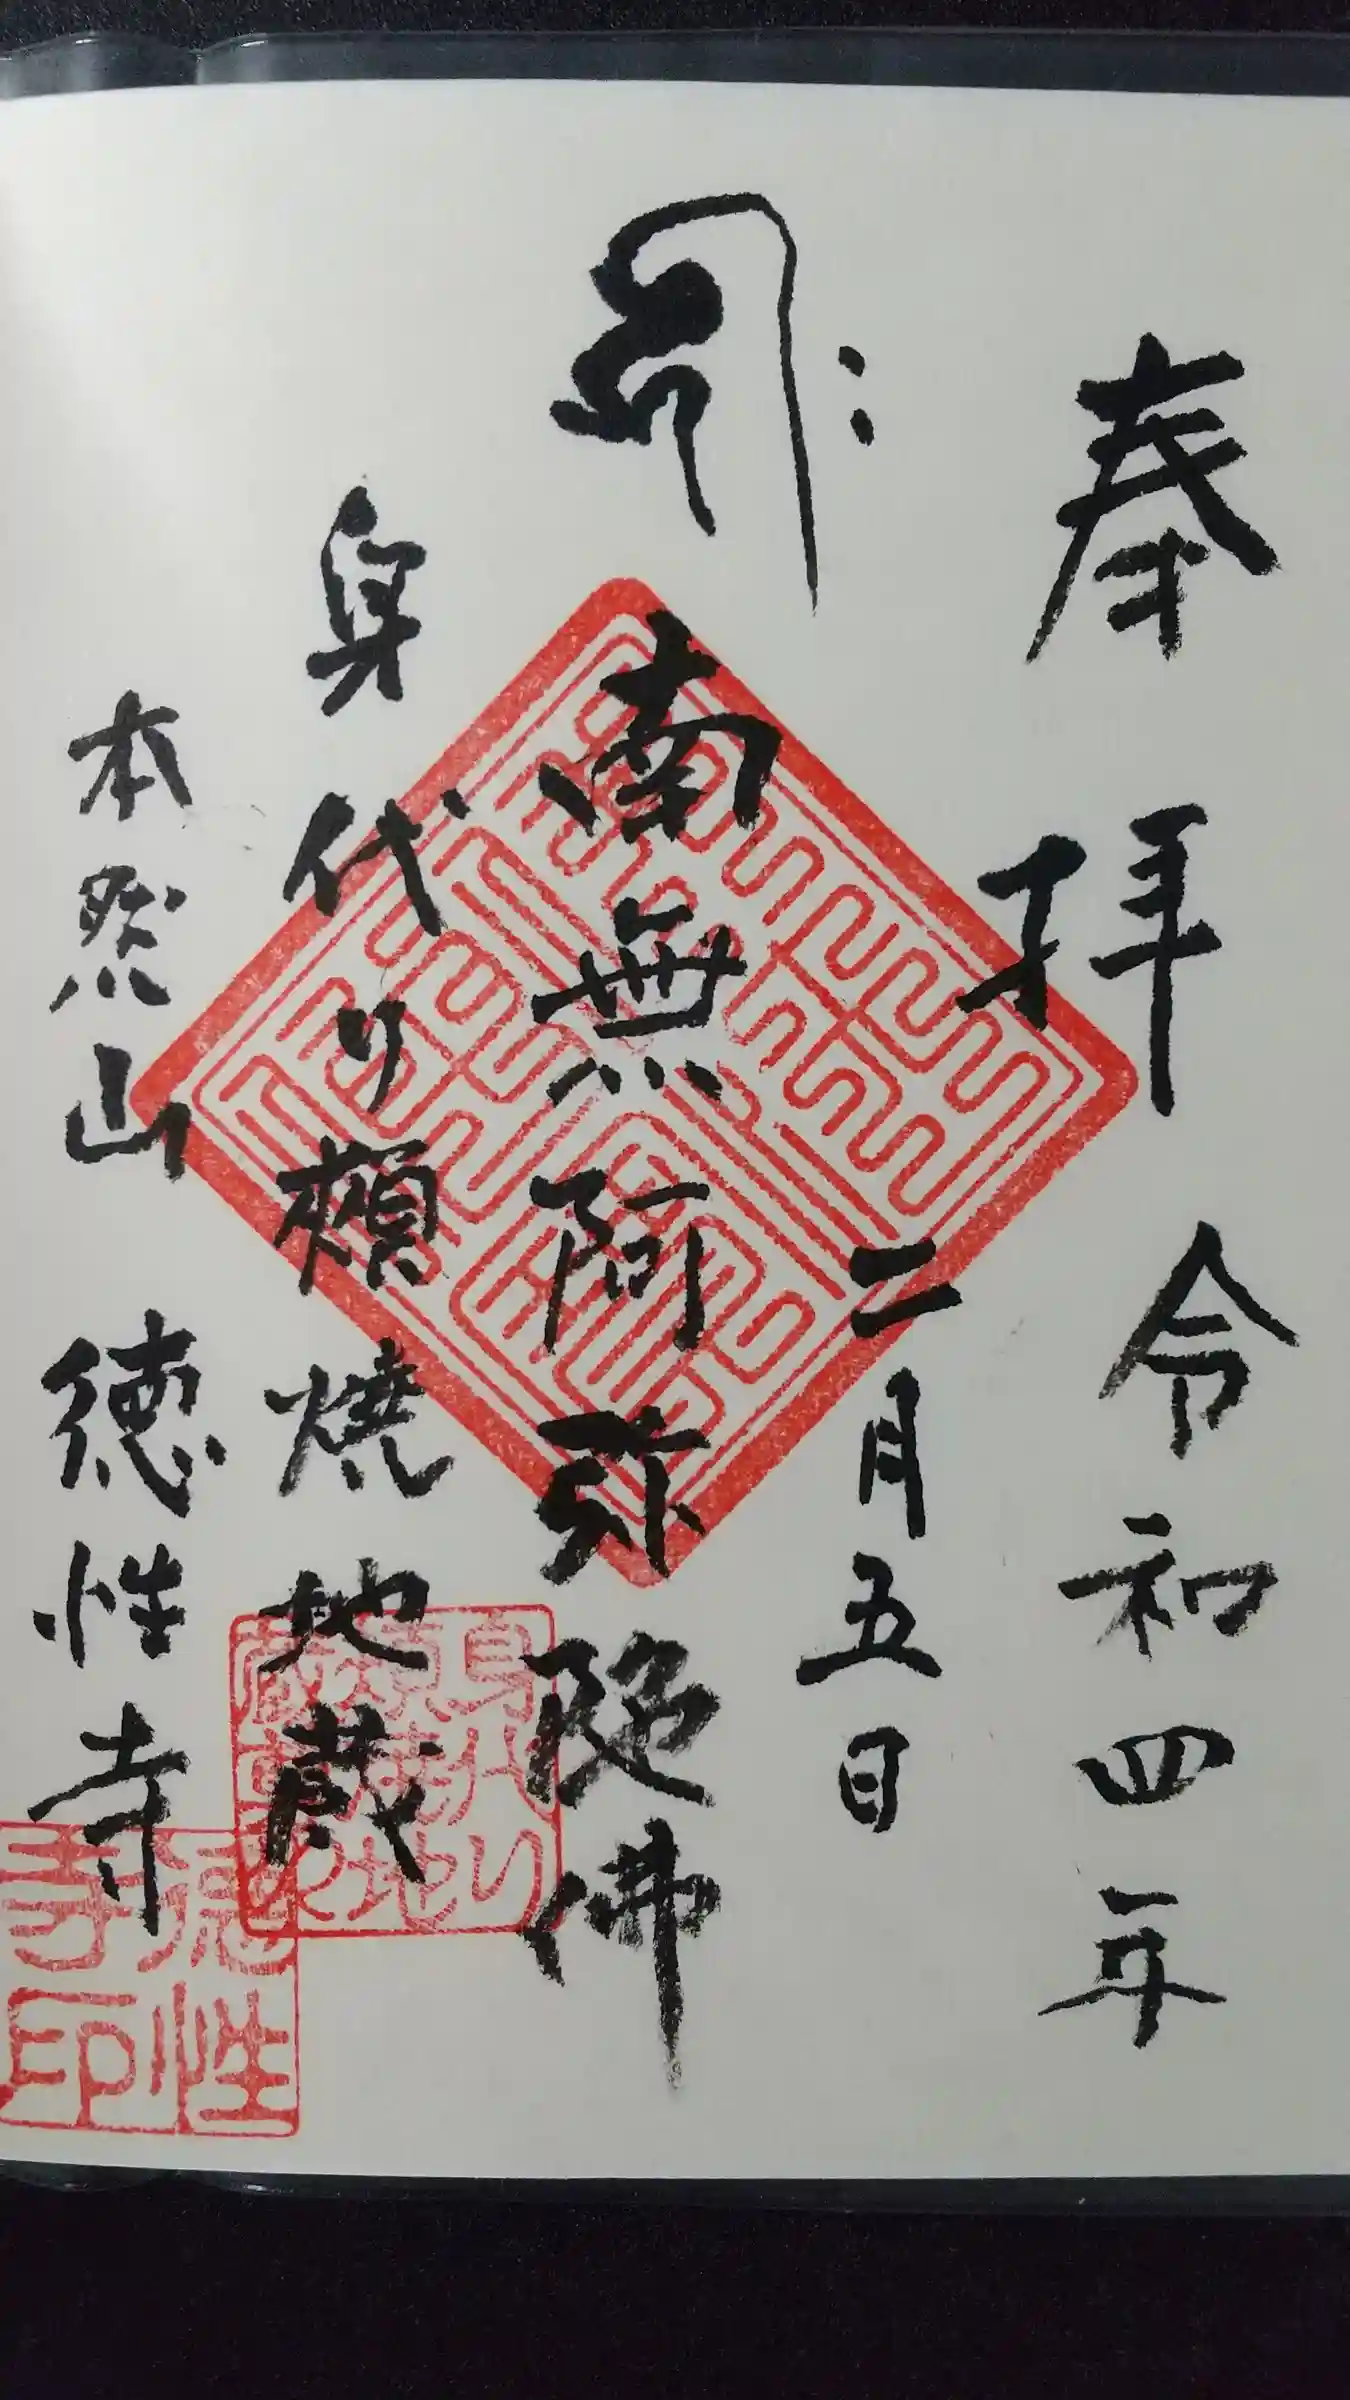 奉拝 令和四年
二月五日
南無阿弥陀佛
身代り頬焼地蔵
本然山 徳性寺
身代り頬焼地蔵
徳性寺印